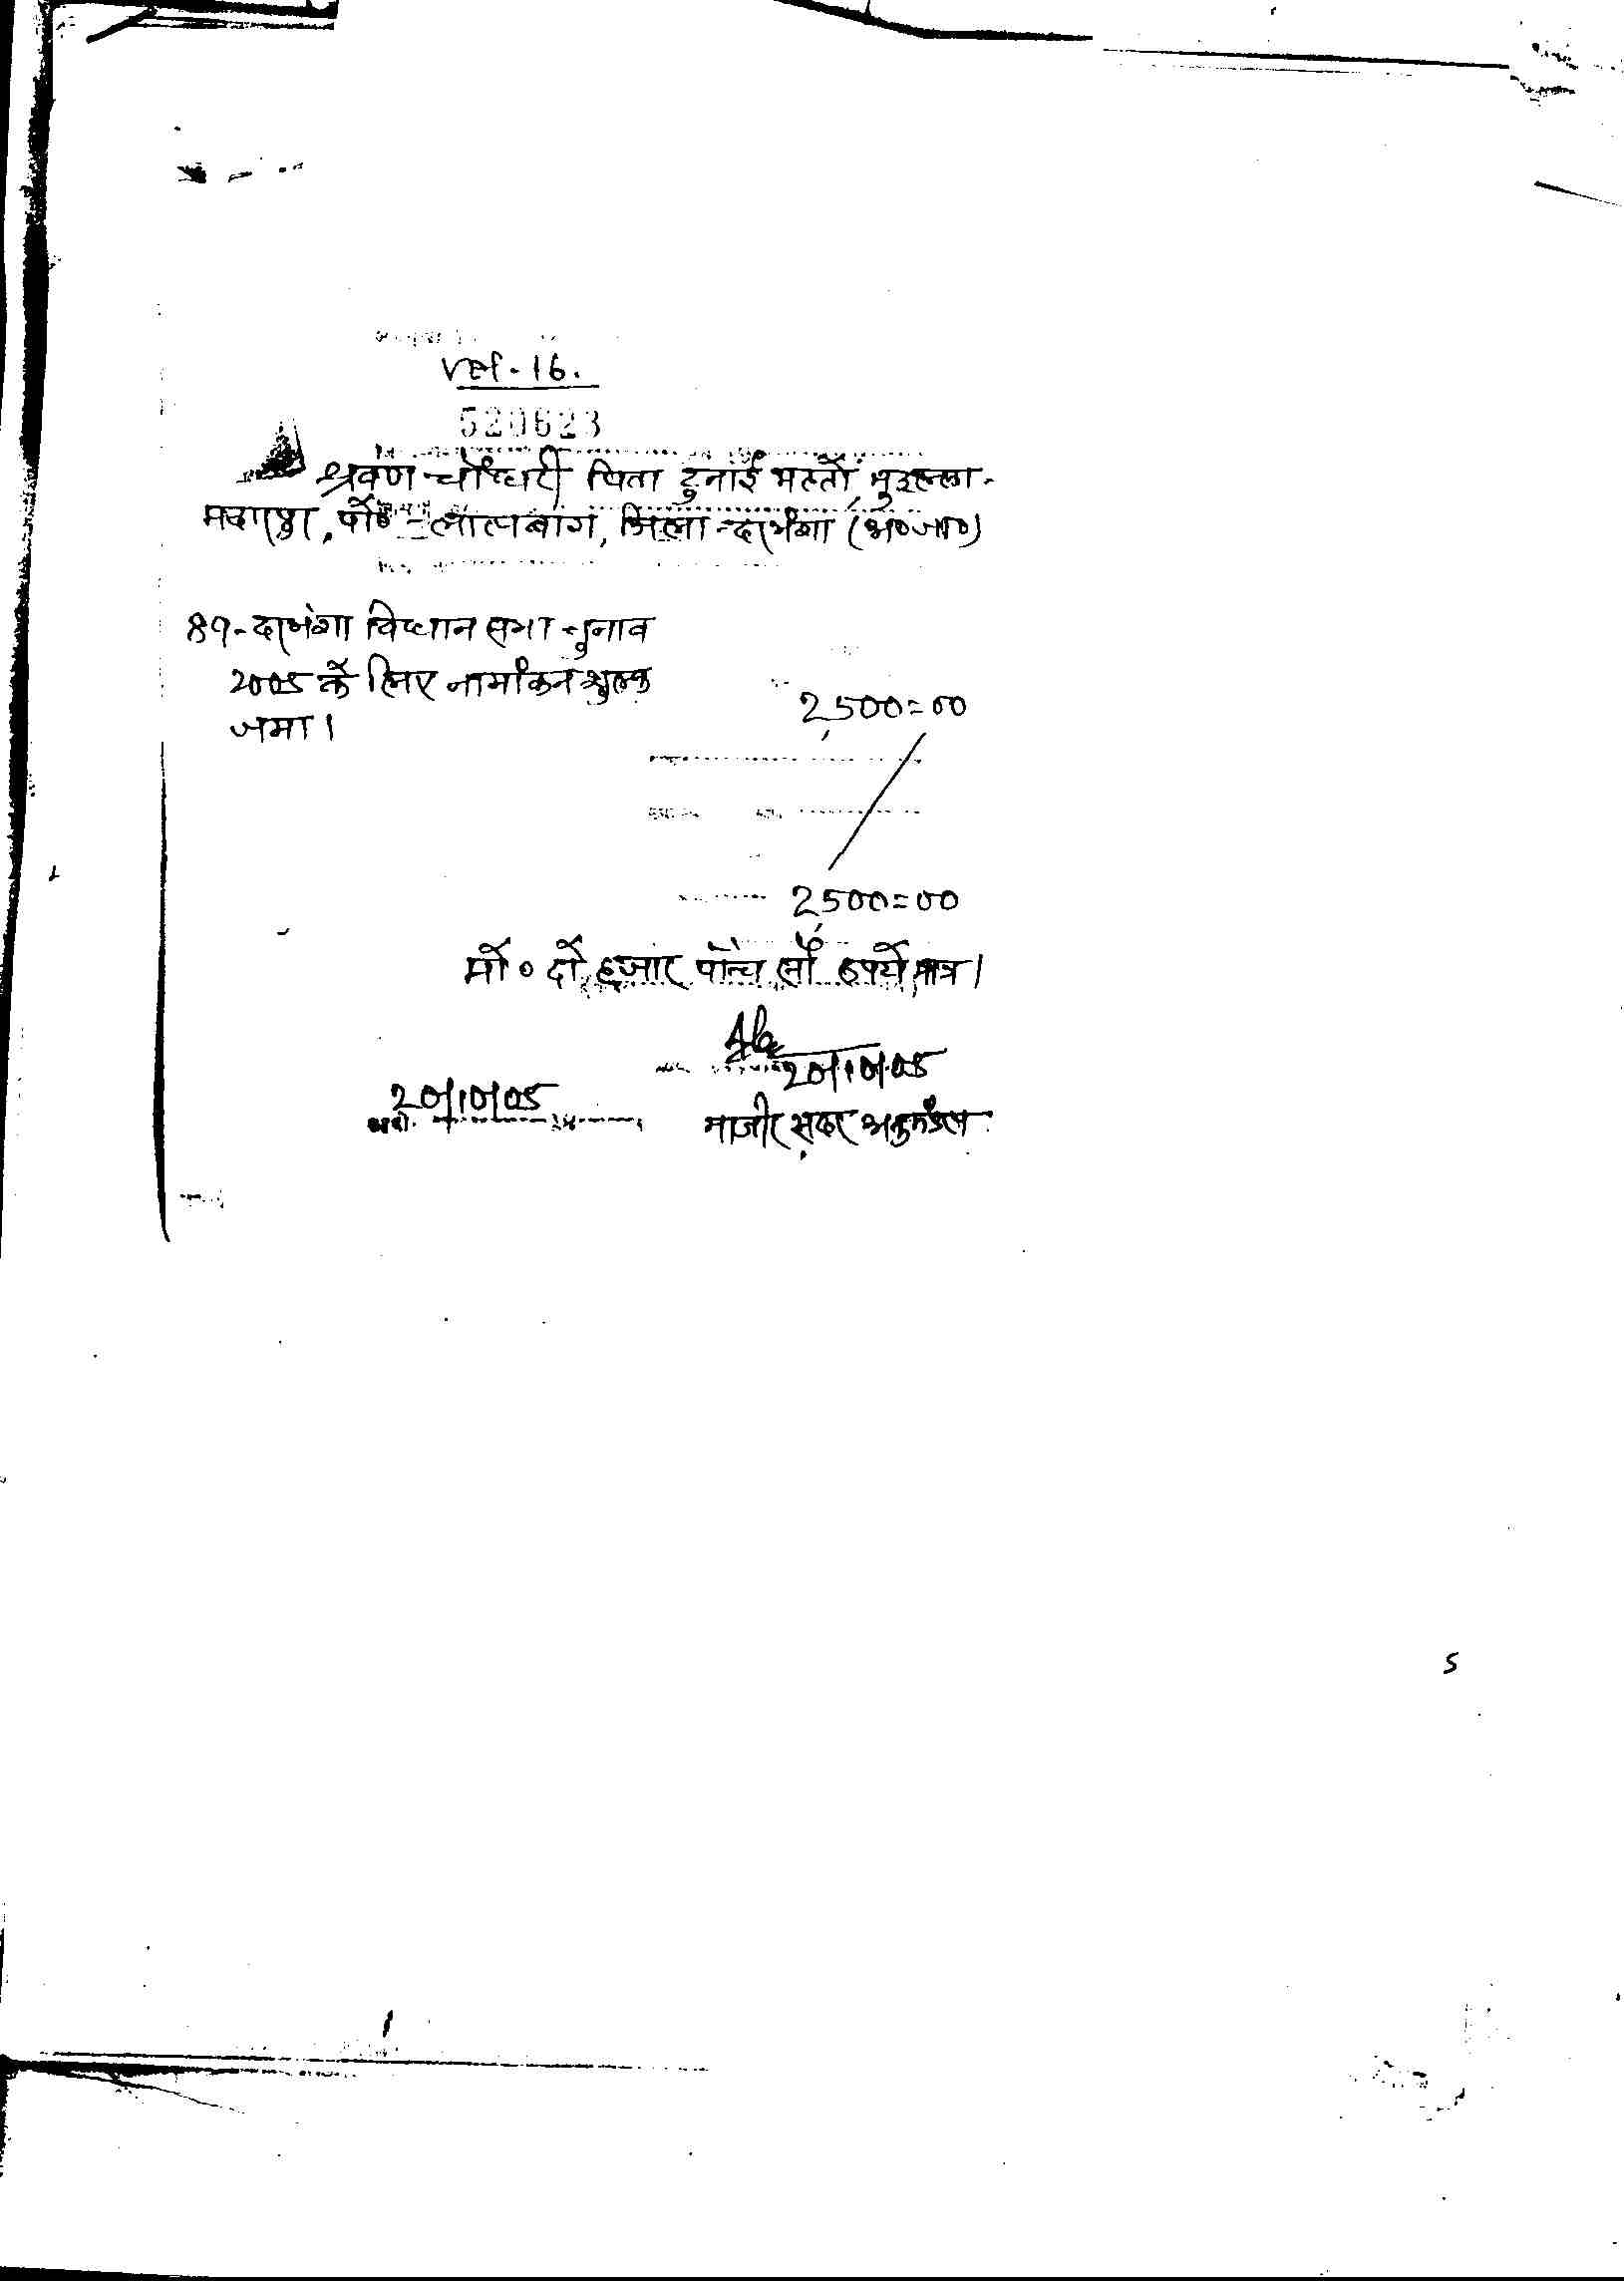 16.
520623
श्रवण चौधरी पिता टुनाई महतो, मुहल्ला-
पो०-लालबाग, जिला-दरभंगा (अ०जा०)
89-दरभंगा विधान सभा चुनाव
2005 के लिए नामांकन शुल्क
जमा।
2,500=00
2,500=00
मो० दो हजार पाँच सौ रूपये मात्र।
20/10/05
20/10/05
नाजीर सदर अनुमंडल